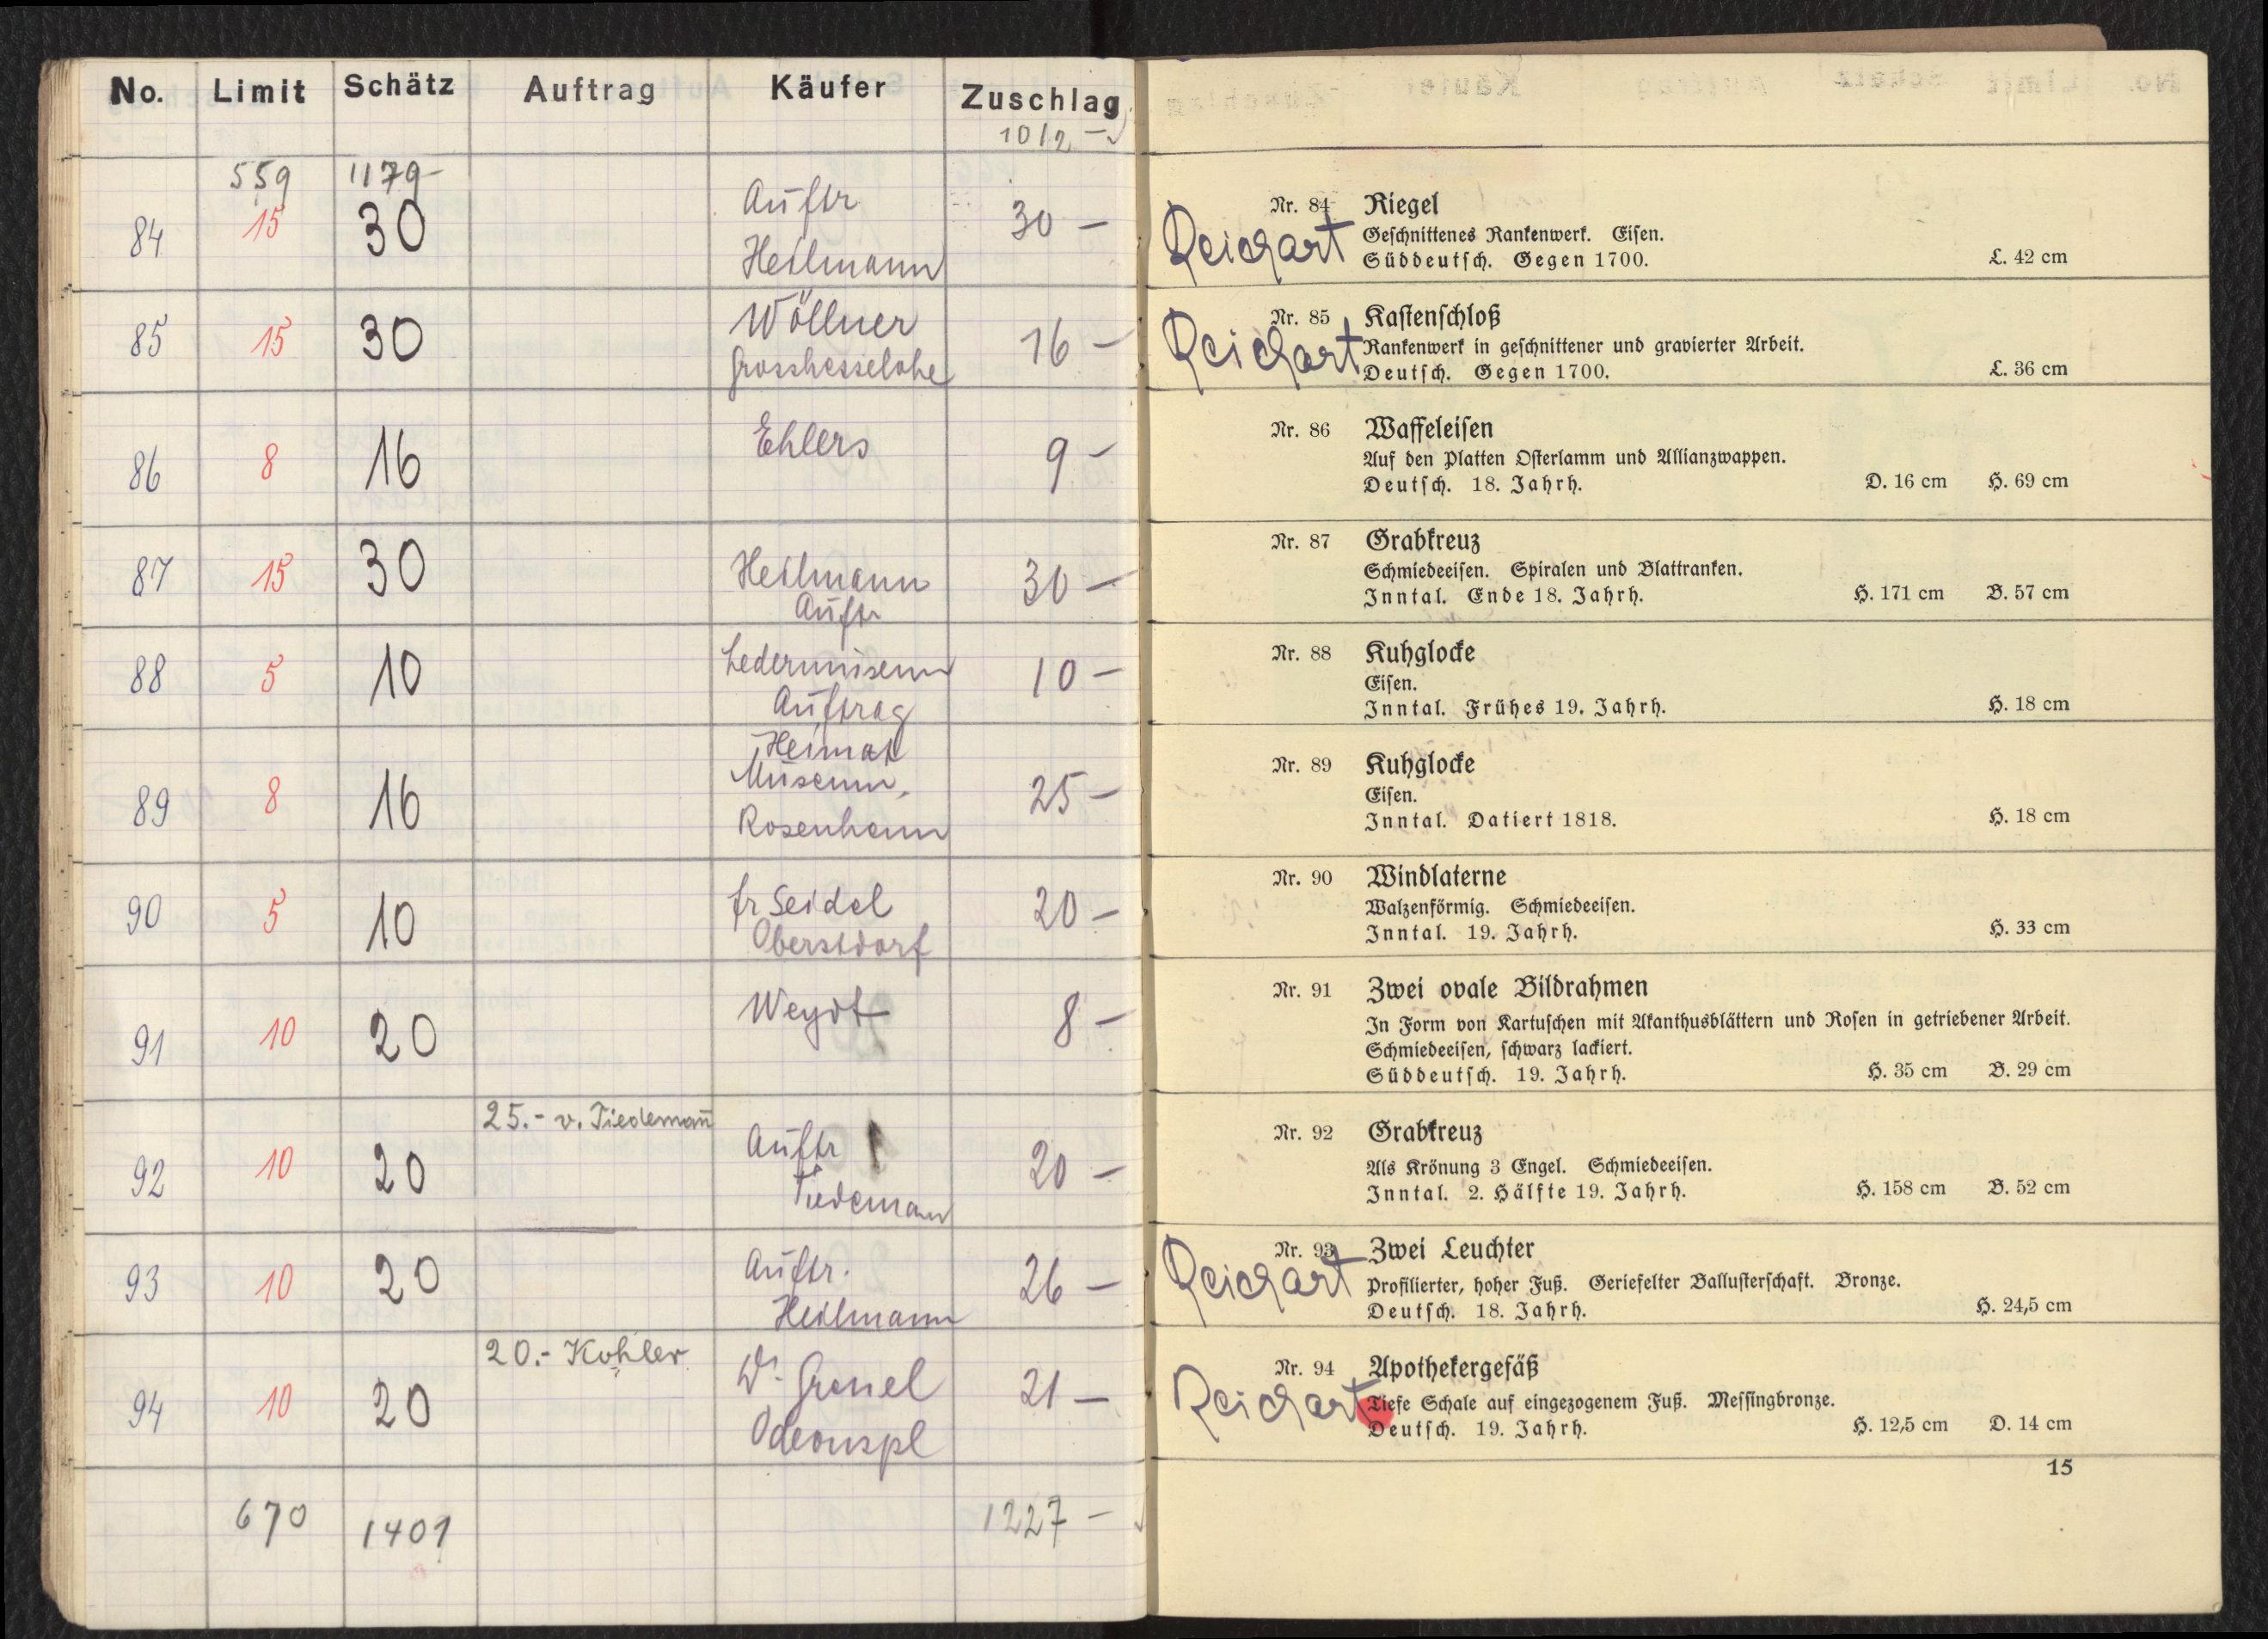 No. Limit Schätz Auftrag Käufer Zuschlag
1012 -
559 1179-
84 15 30 Auftr 30 -
Heilmann
85 15 30 Wöllner 16 -
Grosshesselohe
86 8 16 Ehlers 9 -
87 15 30 Heilmann 30 -
Auftr
88 5 10 Ledermuseum 10 -
Auftrag
Heimat
89 8 16 Museum, 25 -
Rosenheim
90 5 10 fr Seidel 20 -
Oberstdorf
91 10 20 Weydt 8 -
25.- v. Tiedemann
92 10 20 Auftr 20 -
Tiedeman
93 10 20 Auftr. 26 -
Heilmann
20.- Kohler
94 10 20 Dr. 21 -
Odeonspl
670 1401 1227 -
Nr. 84 Riegel
Reichart Geschnittenes Rankenwerk. Eisen.
Süddeutsch. Gegen 1700. L. 42 cm
Nr. 85 Kastenschloß
Reichart Rankenwerk in geschnittener und gravierter Arbeit.
Deutsch. Gegen 1700. L. 36 cm
Nr. 86 Waffeleisen
Auf den Platten Osterlamm und Allianzwappen.
Deutsch. 18. Jahrh. D. 16 cm H. 69 cm
Nr. 87 Grabkreuz
Schmiedeeisen. Spiralen und Blattranken.
Inntal. Ende 18. Jahrh. H. 171 cm B. 57 cm
Nr. 88 Kuhglocke
Eisen.
Inntal. Frühes 19. Jahrh. H. 18 cm
Nr. 89 Kuhglocke
Eisen.
Inntal. Datiert 1818. H. 18 cm
Nr. 90 Windlaterne
Walzenförmig. Schmiedeeisen.
Inntal. 19. Jahrh. H. 33 cm
Nr. 91 Zwei ovale Bildrahmen
In Form von Kartuschen mit Akanthusblättern und Rosen in getriebener Arbeit.
Schmiedeeisen, schwarz lackiert.
Süddeutsch. 19. Jahrh. H. 35 cm B. 29 cm
Nr. 92 Grabkreuz
Als Krönung 3 Engel. Schmiedeeisen.
Inntal. 2. Hälfte 19. Jahrh. H. 158 cm B. 52 cm
Nr. 93 Zwei Leuchter
Reichart Profilierter, hoher Fuß. Geriefelter Ballusterschaft. Bronze.
Deutsch. 18. Jahrh. H. 24,5 cm
Nr. 94 Apothekergefäß
Reichart Tiefe Schale auf eingezogenem Fuß. Messingbronze.
Deutsch. 19. Jahrh. H. 12,5 cm D. 14 cm
15